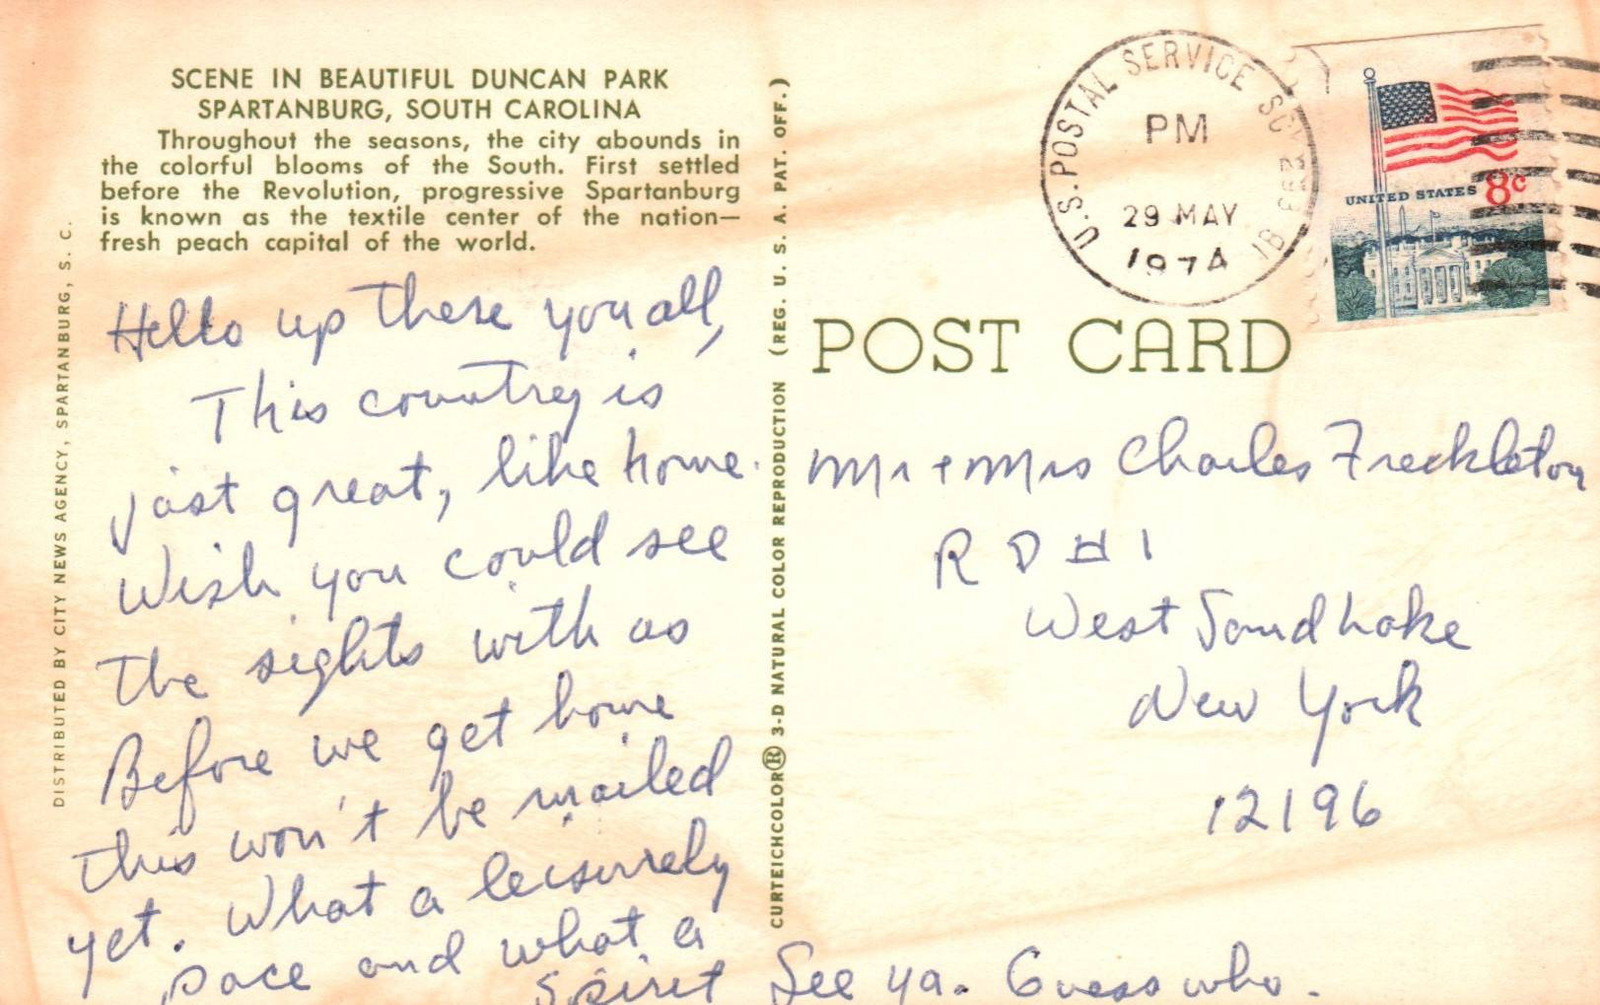 SCENE IN BEAUTIFUL DUNCAN PARK
SPARTANBURG, SOUTH CAROLINA
Throughout the seasons, the city abounds in
the colorful blooms of the South. First settled
before the Revolution, progressive Spartanburg
is known as the textile center of the nation—
fresh peach capital of the world.
DISTRIBUTED BY CITY NEWS AGENCY, SPARTANBURG, S. C.
Hello up there you all,
This country is
just great, like home.
Wish you could see
the sights with us
Before we get home
this won't be mailed
yet. What a leisurely
pace and what a
spirit See ya. Guess who.
CURTEICHCOLOR® 3-D NATURAL COLOR REPRODUCTION (REG. U. S. A. PAT. OFF.)
U.S. POSTAL SERVICE SC
PM
29 MAY
1974
UNITED STATES 8c
POST CARD
Mr + Mrs Charles Freckleton
R D # 1
West Sand Lake
New York
12196